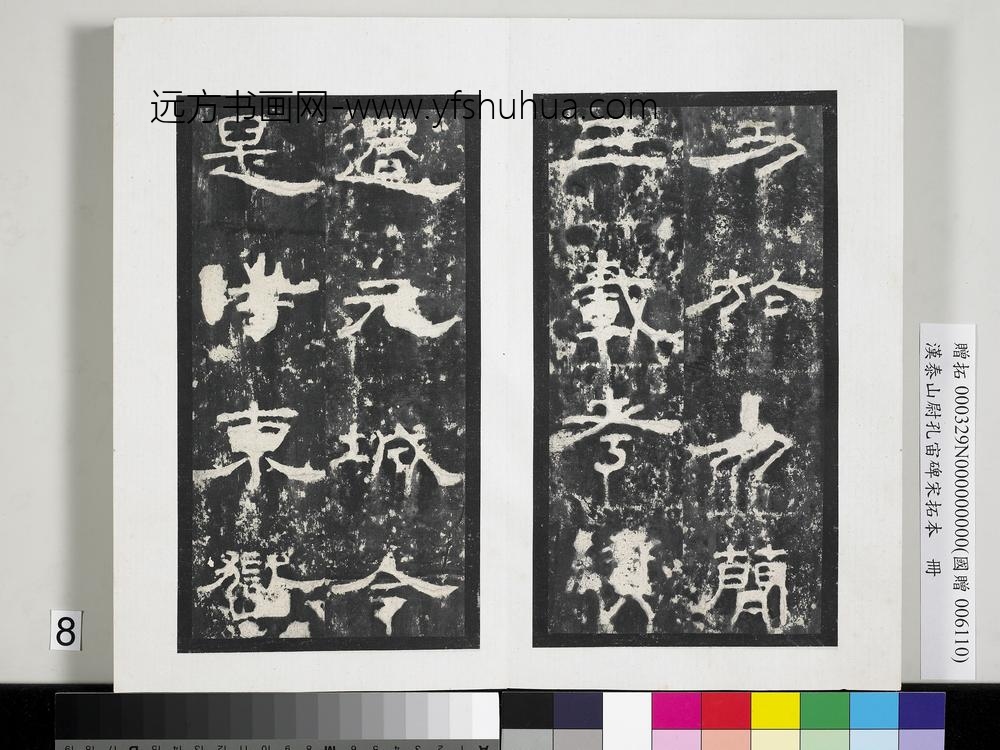 远方书画网-www.yfshuhua.com
功於易簡
三載考績
遷元城令
是時東嶽
贈拓 000329N000000000(國贈 006110)
漢泰山尉孔宙碑宋拓本 冊
8